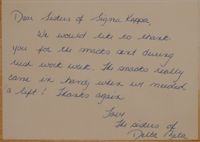 Dear Sisters of Sigma Kappa,
We would like to thank
you for the snacks sent during
rush work week. The snacks really
came in handy when we needed
a lift! Thanks again.
Love,
The sisters of
Delta Zeta